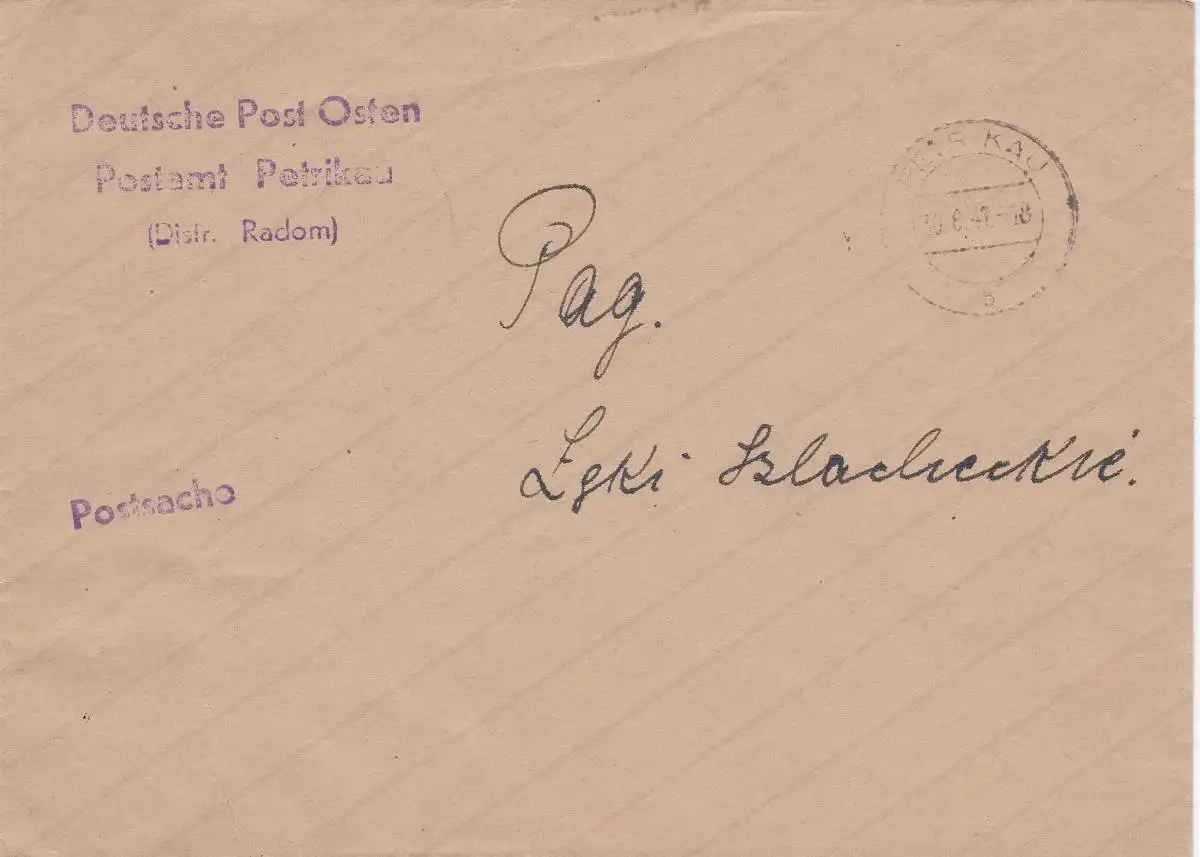 Deutsche Post Osten
Postamt Petrikau
(Distr. Radom)
PETRIKAU
10.6.41.-18
b
Pag.
Łęki Szlacheckie.
Postsache